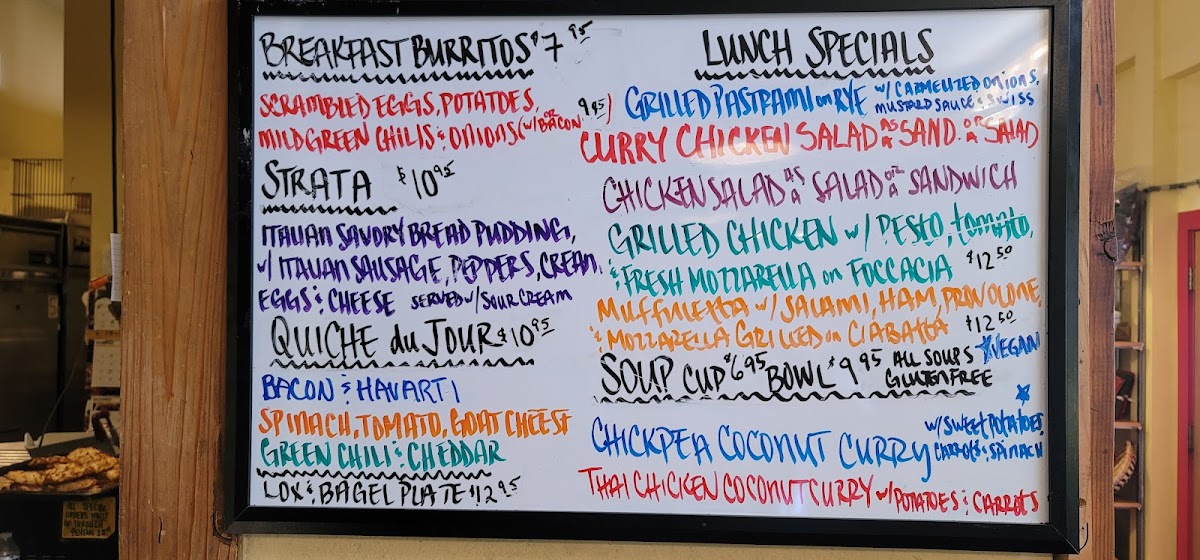 BREAKFAST BURRITOS $7.95
SCRAMBLED EGGS, POTATOES,
MILD GREEN CHILIS & ONIONS (W/ OR BACON 9.45)
STRATA $10.95
ITALIAN SAVORY BREAD PUDDING,
W/ ITALIAN SAUSAGE, PEPPERS, CREAM,
EGGS & CHEESE SERVED W/ SOUR CREAM
QUICHE du JOUR $10.95
BACON & HAVARTI
SPINACH, TOMATO, GOAT CHEESE
GREEN CHILI & CHEDDAR
LOX & BAGEL PLATE $12.95
LUNCH SPECIALS
GRILLED PASTRAMI on RYE W/ CARMELIZED ONIONS,
MUSTARD SAUCE & SWISS
CURRY CHICKEN SALAD AS A SAND. OR A SALAD
CHICKEN SALAD AS A SALAD OR A SANDWICH
GRILLED CHICKEN W/ PESTO, tomato,
& FRESH MOZZARELLA on FOCCACIA $12.50
Muffuletta W/ SALAMI, HAM, PROVOLONE,
& MOZZARELLA GRILLED on CIABATTA $12.50
SOUP CUP $6.95 BOWL $9.95 ALL SOUPS GLUTEN FREE
VEGAN
CHICKPEA COCONUT CURRY W/ SWEET POTATOES,
CARROTS & SPINACH
THAI CHICKEN COCONUT CURRY W/ POTATOES & CARROTS
ALL SPECIAL
ORDERS MUST
GO THROUGH